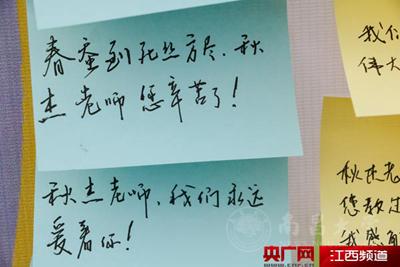 春蚕到死丝方尽，秋
杰老师您辛苦了！
秋杰老师，我们永远
爱着你！
我们
伟大
秋杰老
您教过
我感
央广网
www.cnr.cn
江西频道